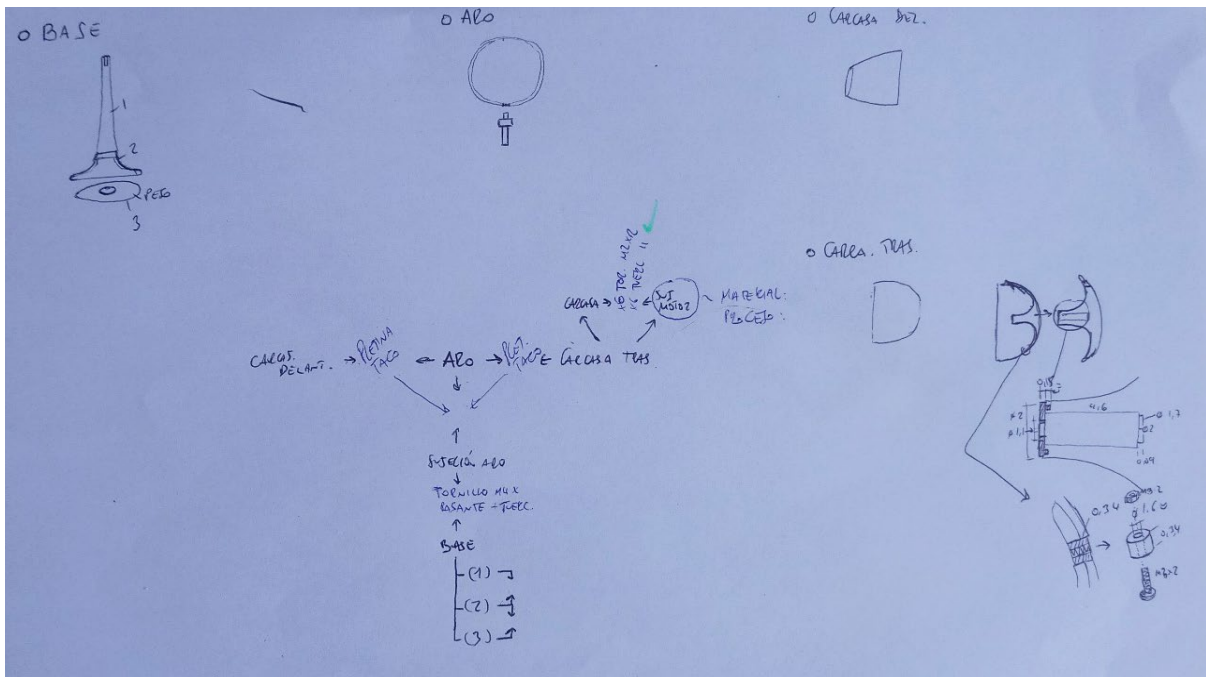 o BASE
1
2
PESO
3
o ARO
o CARCASA DEL.
o CARCA. TRAS.
x6 TOR. M2x12
x6 TUERC "
CARCASA → ← SUJ
MOTOR
MATERIAL:
PROCESO:
CARCAS.
DELANT. → PLETINA
TACO ← ARO → PLET.
TACO ← CARCASA TRAS.
SUJECIÓN ARO
TORNILLO M4 X
PASANTE + TUERC.
BASE
(1)
(2)
(3)
0,18
4,6
ø 2
ø 1,1
ø 1,7
0,34
ø 1,6
0,34
M2x2